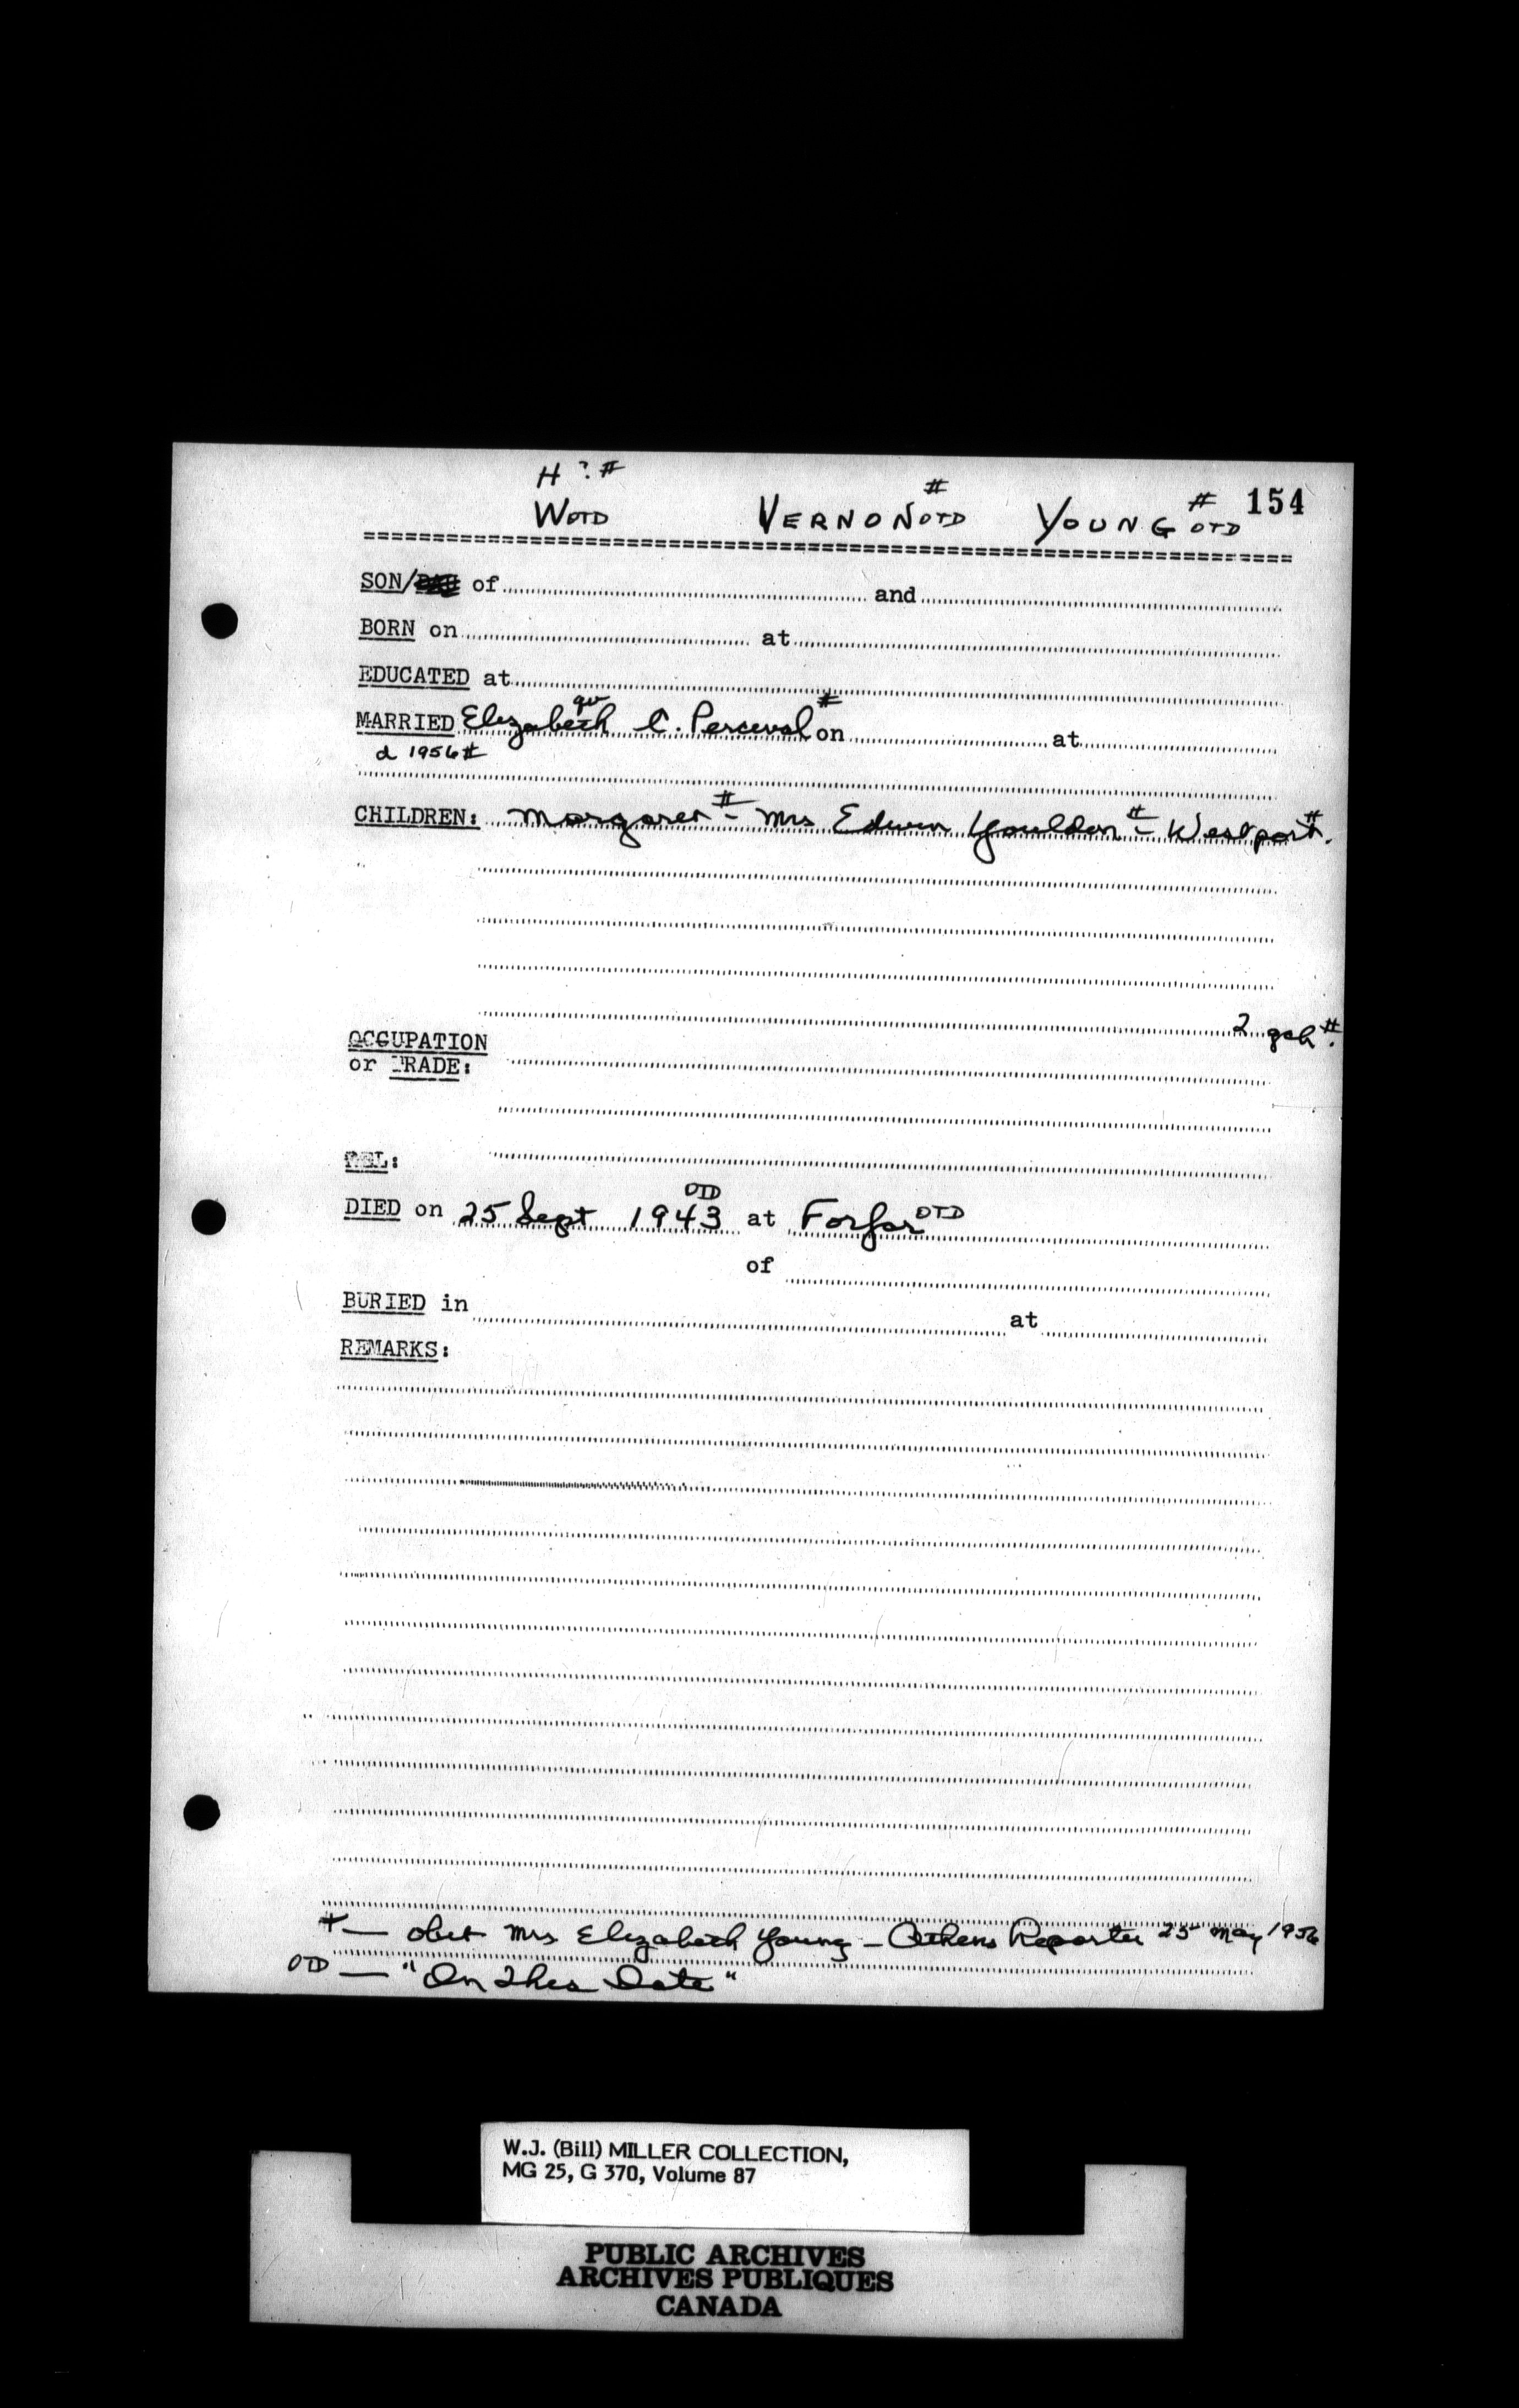 H ? #
WOTD VERNON # OTD YOUNG # OTD 154
SON/ of and
BORN on at
EDUCATED at
MARRIED Elizabeth qv C. Perceval # on at
d 1956 #
CHILDREN: Margaret # - Mrs Edwin Youlden # - Westport #.
2 gch #.
OCCUPATION
or TRADE:
REL:
DIED on 25 Sept 1943 OTD at Forfar OTD
of
BURIED in at
REMARKS:
# — obit Mrs Elizabeth Young - Athens Reporter 25 May 1956
OTD — "On This Date"
W.J. (Bill) MILLER COLLECTION,
MG 25, G 370, Volume 87
PUBLIC ARCHIVES
ARCHIVES PUBLIQUES
CANADA